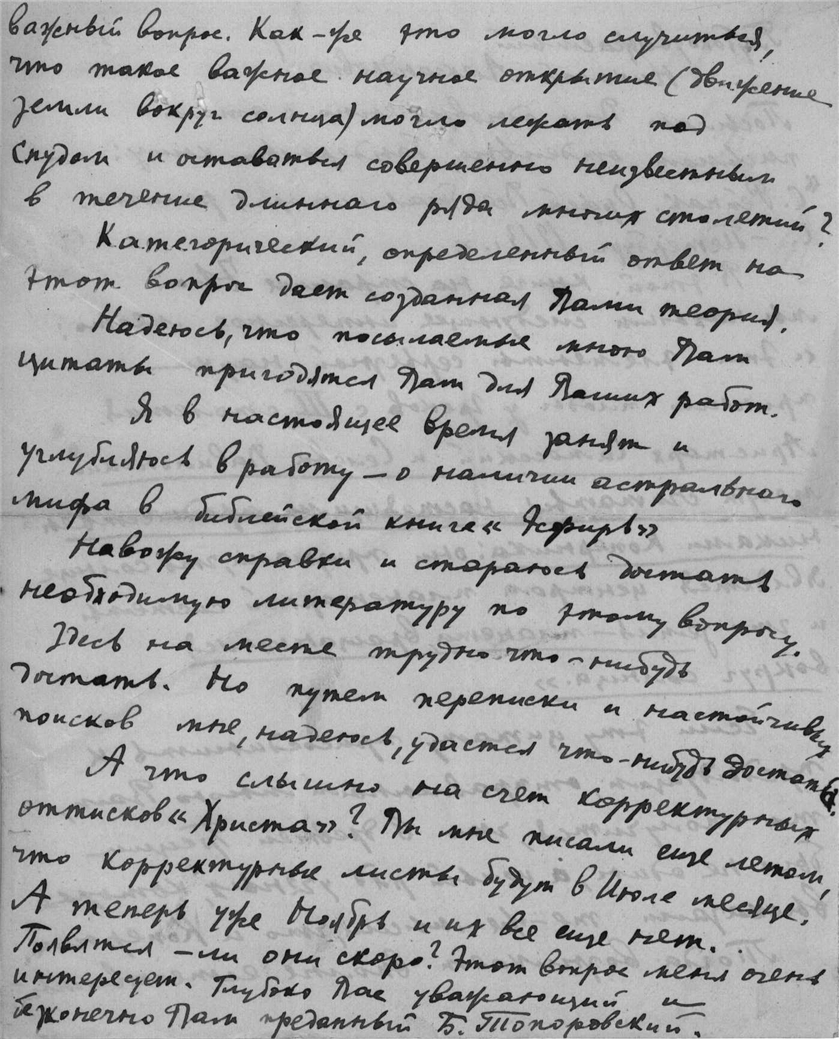 важный вопрос. Как-же это могло случиться,
что такое важное научное открытие (движение
земли вокруг солнца) могло лежать под
спудом и оставаться совершенно неизвестным
в течение длиннаго ряда многих столетий?
Категорический, определенный ответ на
этот вопрос дает созданная Вами теория.
Надеюсь, что посылаемые мною Вам
цитаты пригодятся Вам для Ваших работ.
Я в настоящее время занят и
углубляюсь в работу — о наличии астральнаго
мифа в библейской книге «Эсфирь»
Навожу справки и стараюсь достать
необходимую литературу по этому вопросу.
Здесь на месте трудно что-нибудь
достать. Но путем переписки и настойчивых
поисков мне, надеюсь, удастся что-нибудь достать.
А что слышно на счет корректурных
оттисков «Христа»? Вы мне писали еще летом,
что корректурные листы будут в Июле месяце.
А теперь уже Ноябрь и их все еще нет.
Появятся-ли они скоро? Этот вопрос меня очень
интересует. Глубоко Вас уважающий и
безконечно Вам преданный Б. Топоровский.